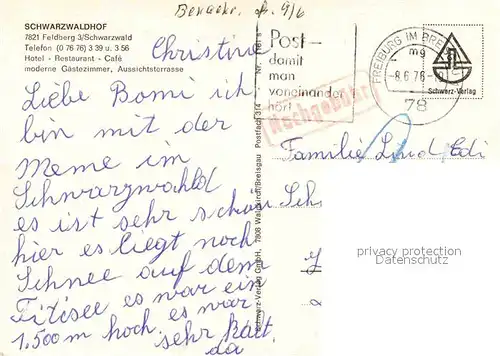 SCHWARZWALDHOF
7821 Feldberg 3/Schwarzwald
Telefon (0 76 76) 3 39 u. 3 56
Hotel - Restaurant - Café
moderne Gästezimmer, Aussichtsterrasse
Christine
Liebe Bomi ich
bin mit der
Meme im
Schwarzwahld
es ist sehr schön
hier es liegt noch
Schnee auf dem
es war ein
1.500 m hoch es war
sehr kalt
da
Schwarz-Verlag GmbH, 7808 Waldkirch/Breisgau Postfach 314
Post-
damit
man
voneinander
hört
Nachgebühr
FREIBURG IM BREISGAU
mg
-8.6.76-
78
Schwarz-Verlag
Familie Lind Edi
privacy protection
Datenschutz